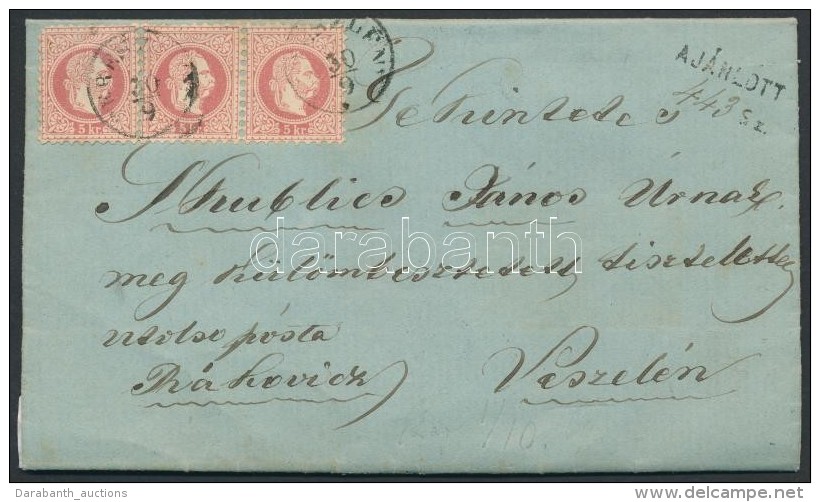 5 kr. 5 kr. 5 kr.
30
9
30
9
AJÁNLOTT
443 Sz.
Tekintetes
Skublics János Úrnak
meg külömböztetett tisztelettel
utolso pósta
Rákovicz Veszelén
1/10.
darabanth
Darabanth_auctions
www.delcampe.net